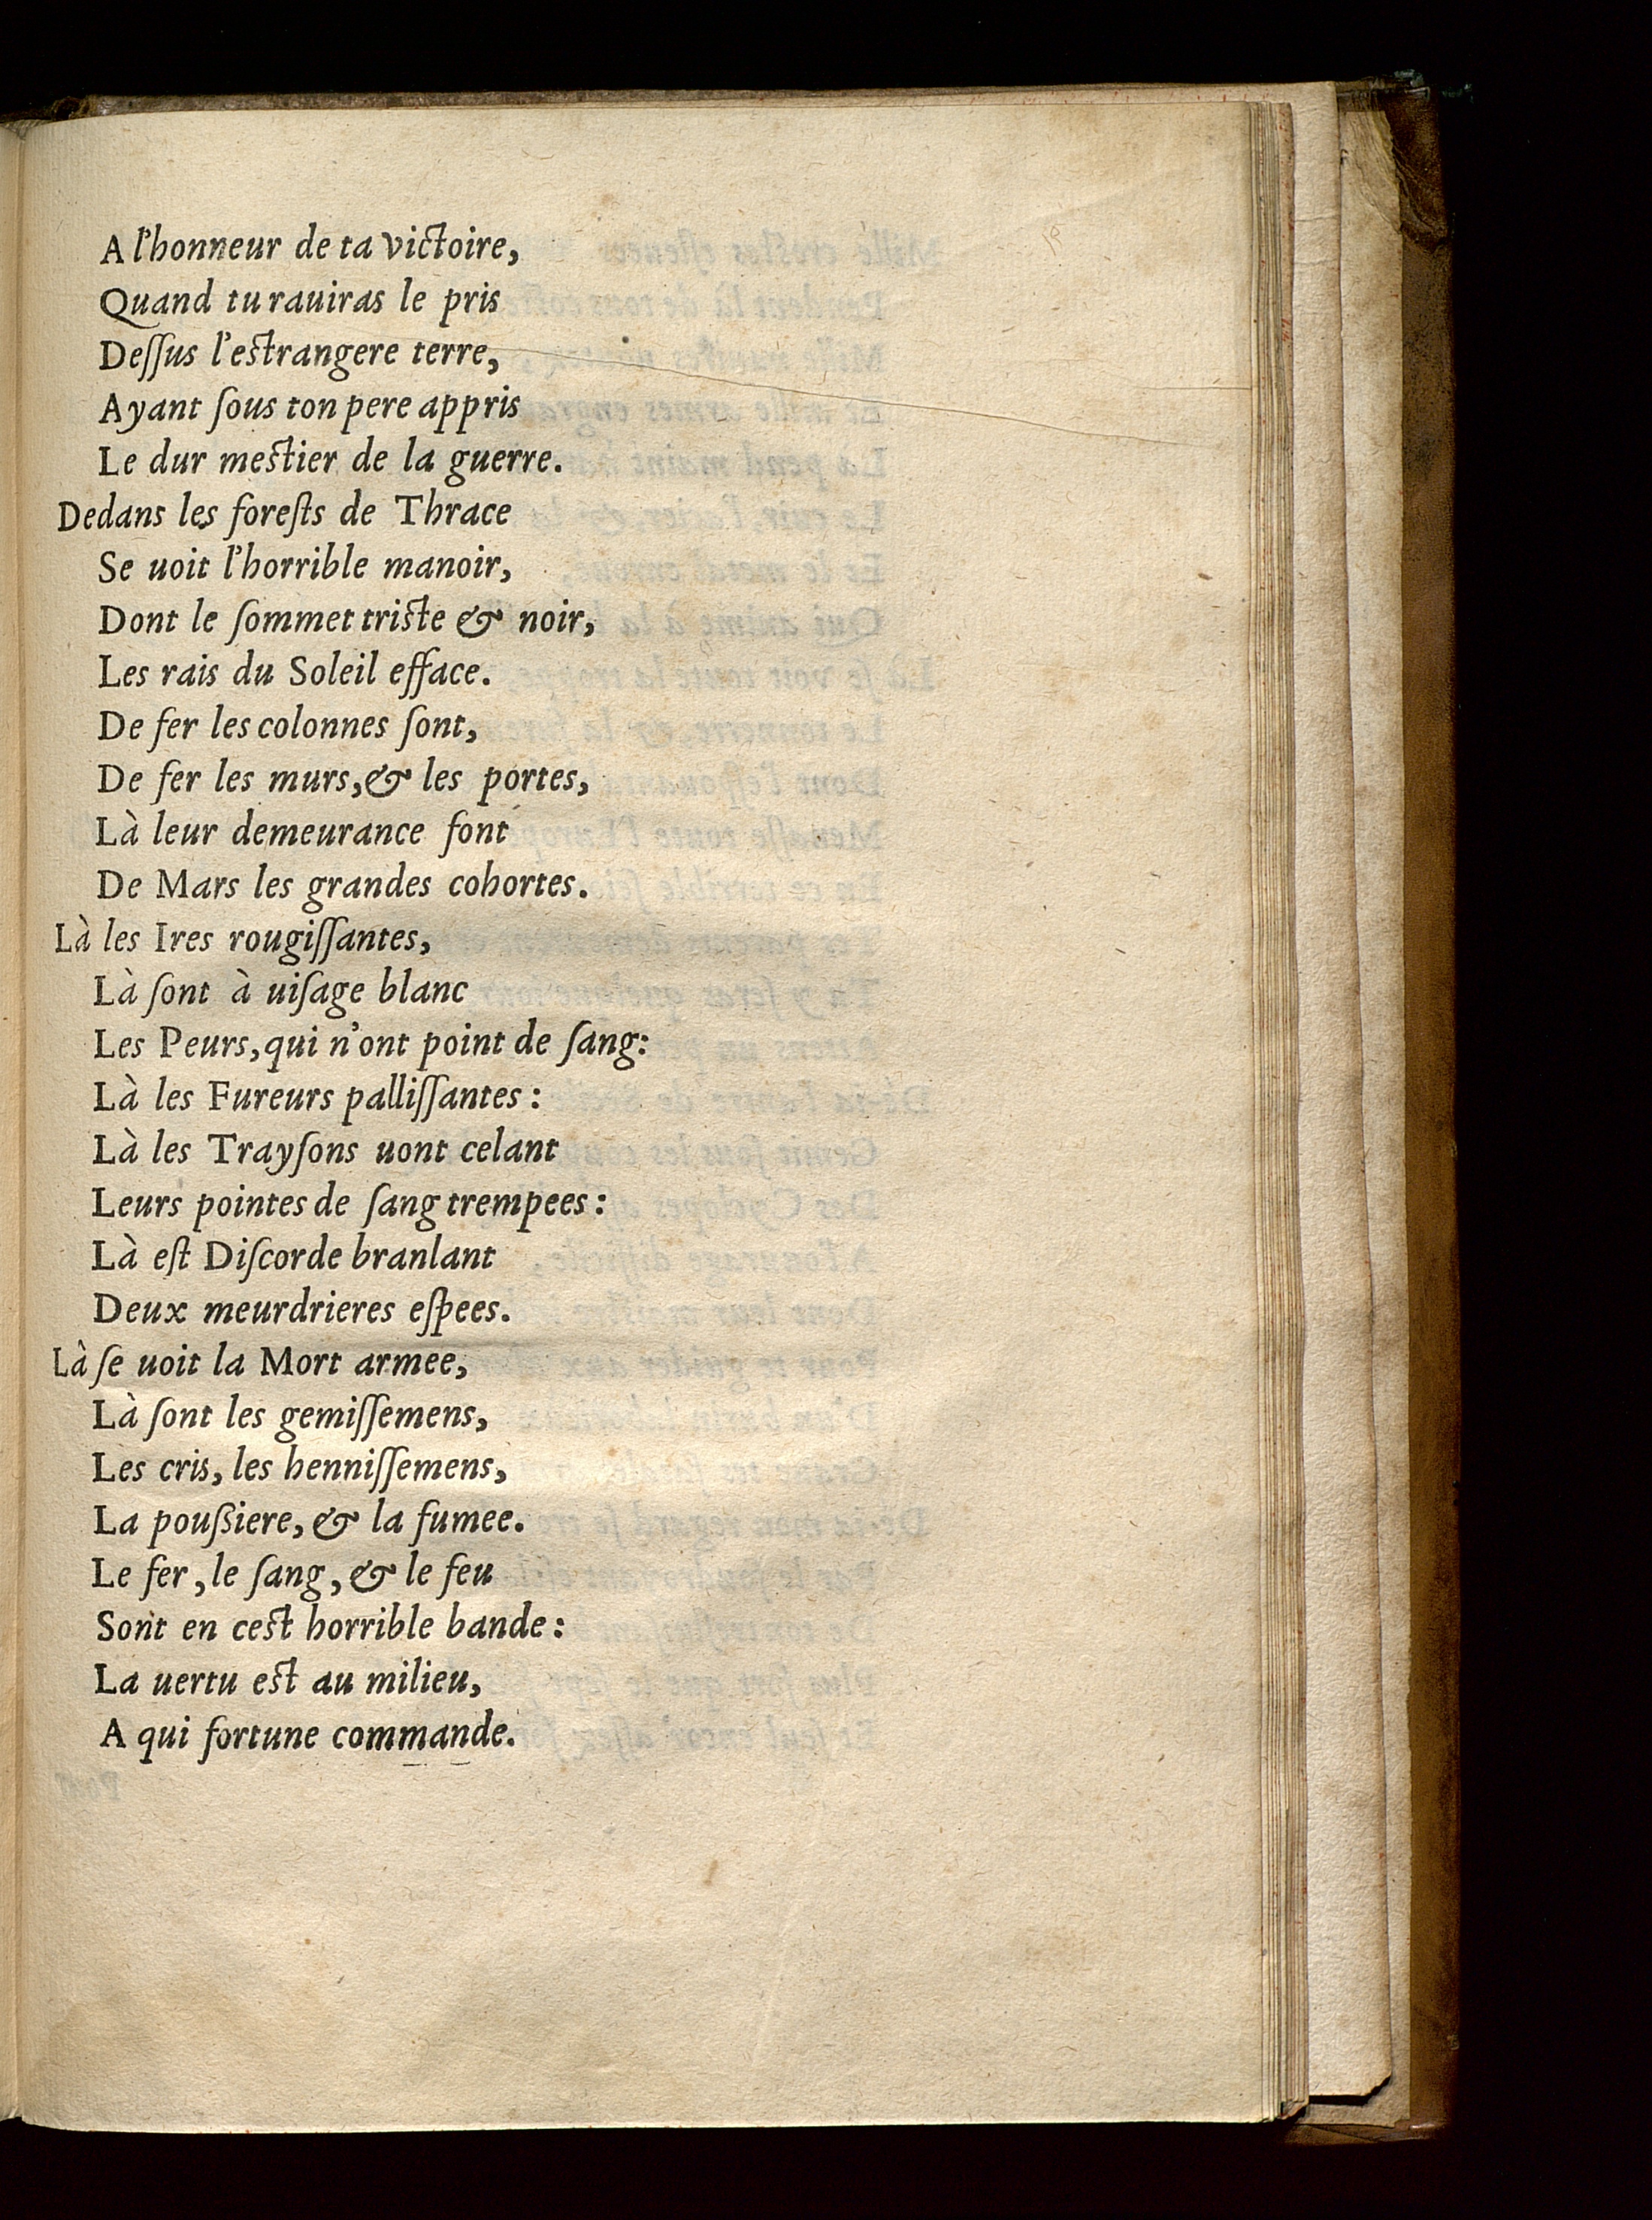 A l'honneur de ta victoire,
Quand tu rauiras le pris
Deſſus l'eſtrangere terre,
Ayant ſous ton pere appris
Le dur meſtier de la guerre.
Dedans les foreſts de Thrace
Se uoit l'horrible manoir,
Dont le ſommet triſte & noir,
Les rais du Soleil efface.
De fer les colonnes ſont,
De fer les murs, & les portes,
Là leur demeurance font
De Mars les grandes cohortes.
Là les Ires rougiſſantes,
Là ſont à uiſage blanc
Les Peurs, qui n'ont point de ſang:
Là les Fureurs palliſſantes:
Là les Trayſons uont celant
Leurs pointes de ſang trempees:
Là eſt Diſcorde branlant
Deux meurdrieres eſpees.
Là ſe uoit la Mort armee,
Là ſont les gemiſſemens,
Les cris, les henniſſemens,
La poußiere, & la fumee.
Le fer, le ſang, & le feu
Sont en ceſt horrible bande:
La uertu eſt au milieu,
A qui fortune commande.